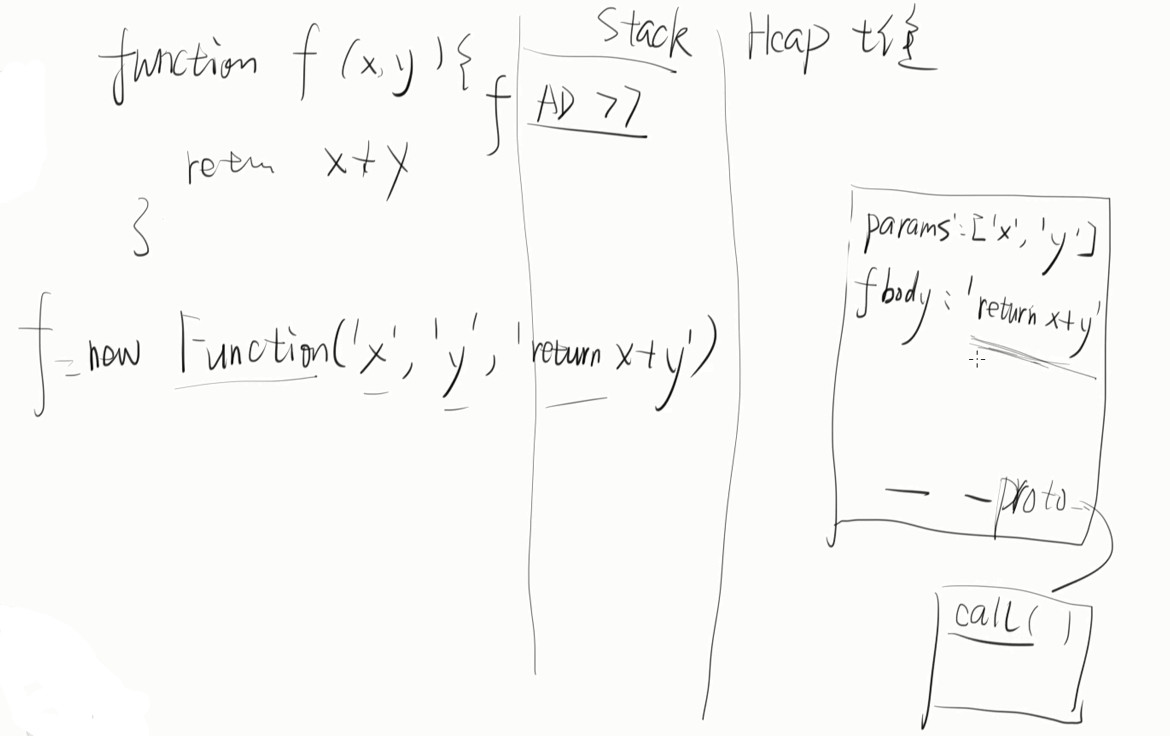 function f (x, y) {
return x+y
}
f = new Function('x', 'y', 'return x+y')
Stack
f
AD 77
Heap
params: ['x', 'y']
fbody: 'return x+y'
— — proto —
call( )